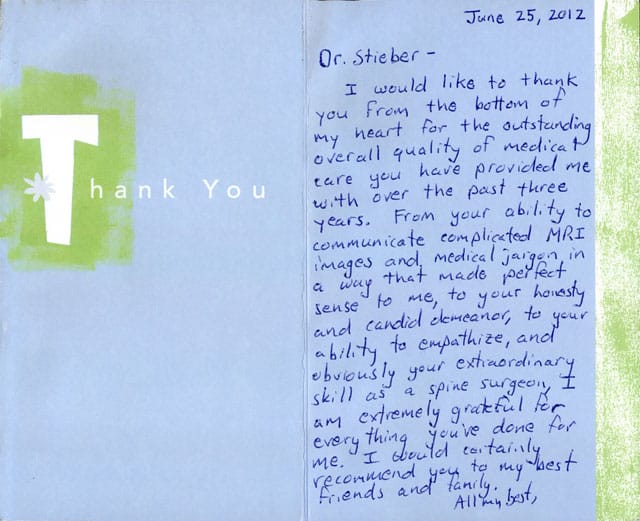 Thank You
June 25, 2012
Dr. Stieber -
I would like to thank
you from the bottom of
my heart for the outstanding
overall quality of medical
care you have provided me
with over the past three
years. From your ability to
communicate complicated MRI
images and medical jargon in
a way that made perfect
sense to me, to your honesty
and candid demeanor, to your
ability to empathize, and
obviously your extraordinary
skill as a spine surgeon, I
am extremely grateful for
everything you've done for
me. I would certainly
recommend you to my best
friends and family.
All my best,